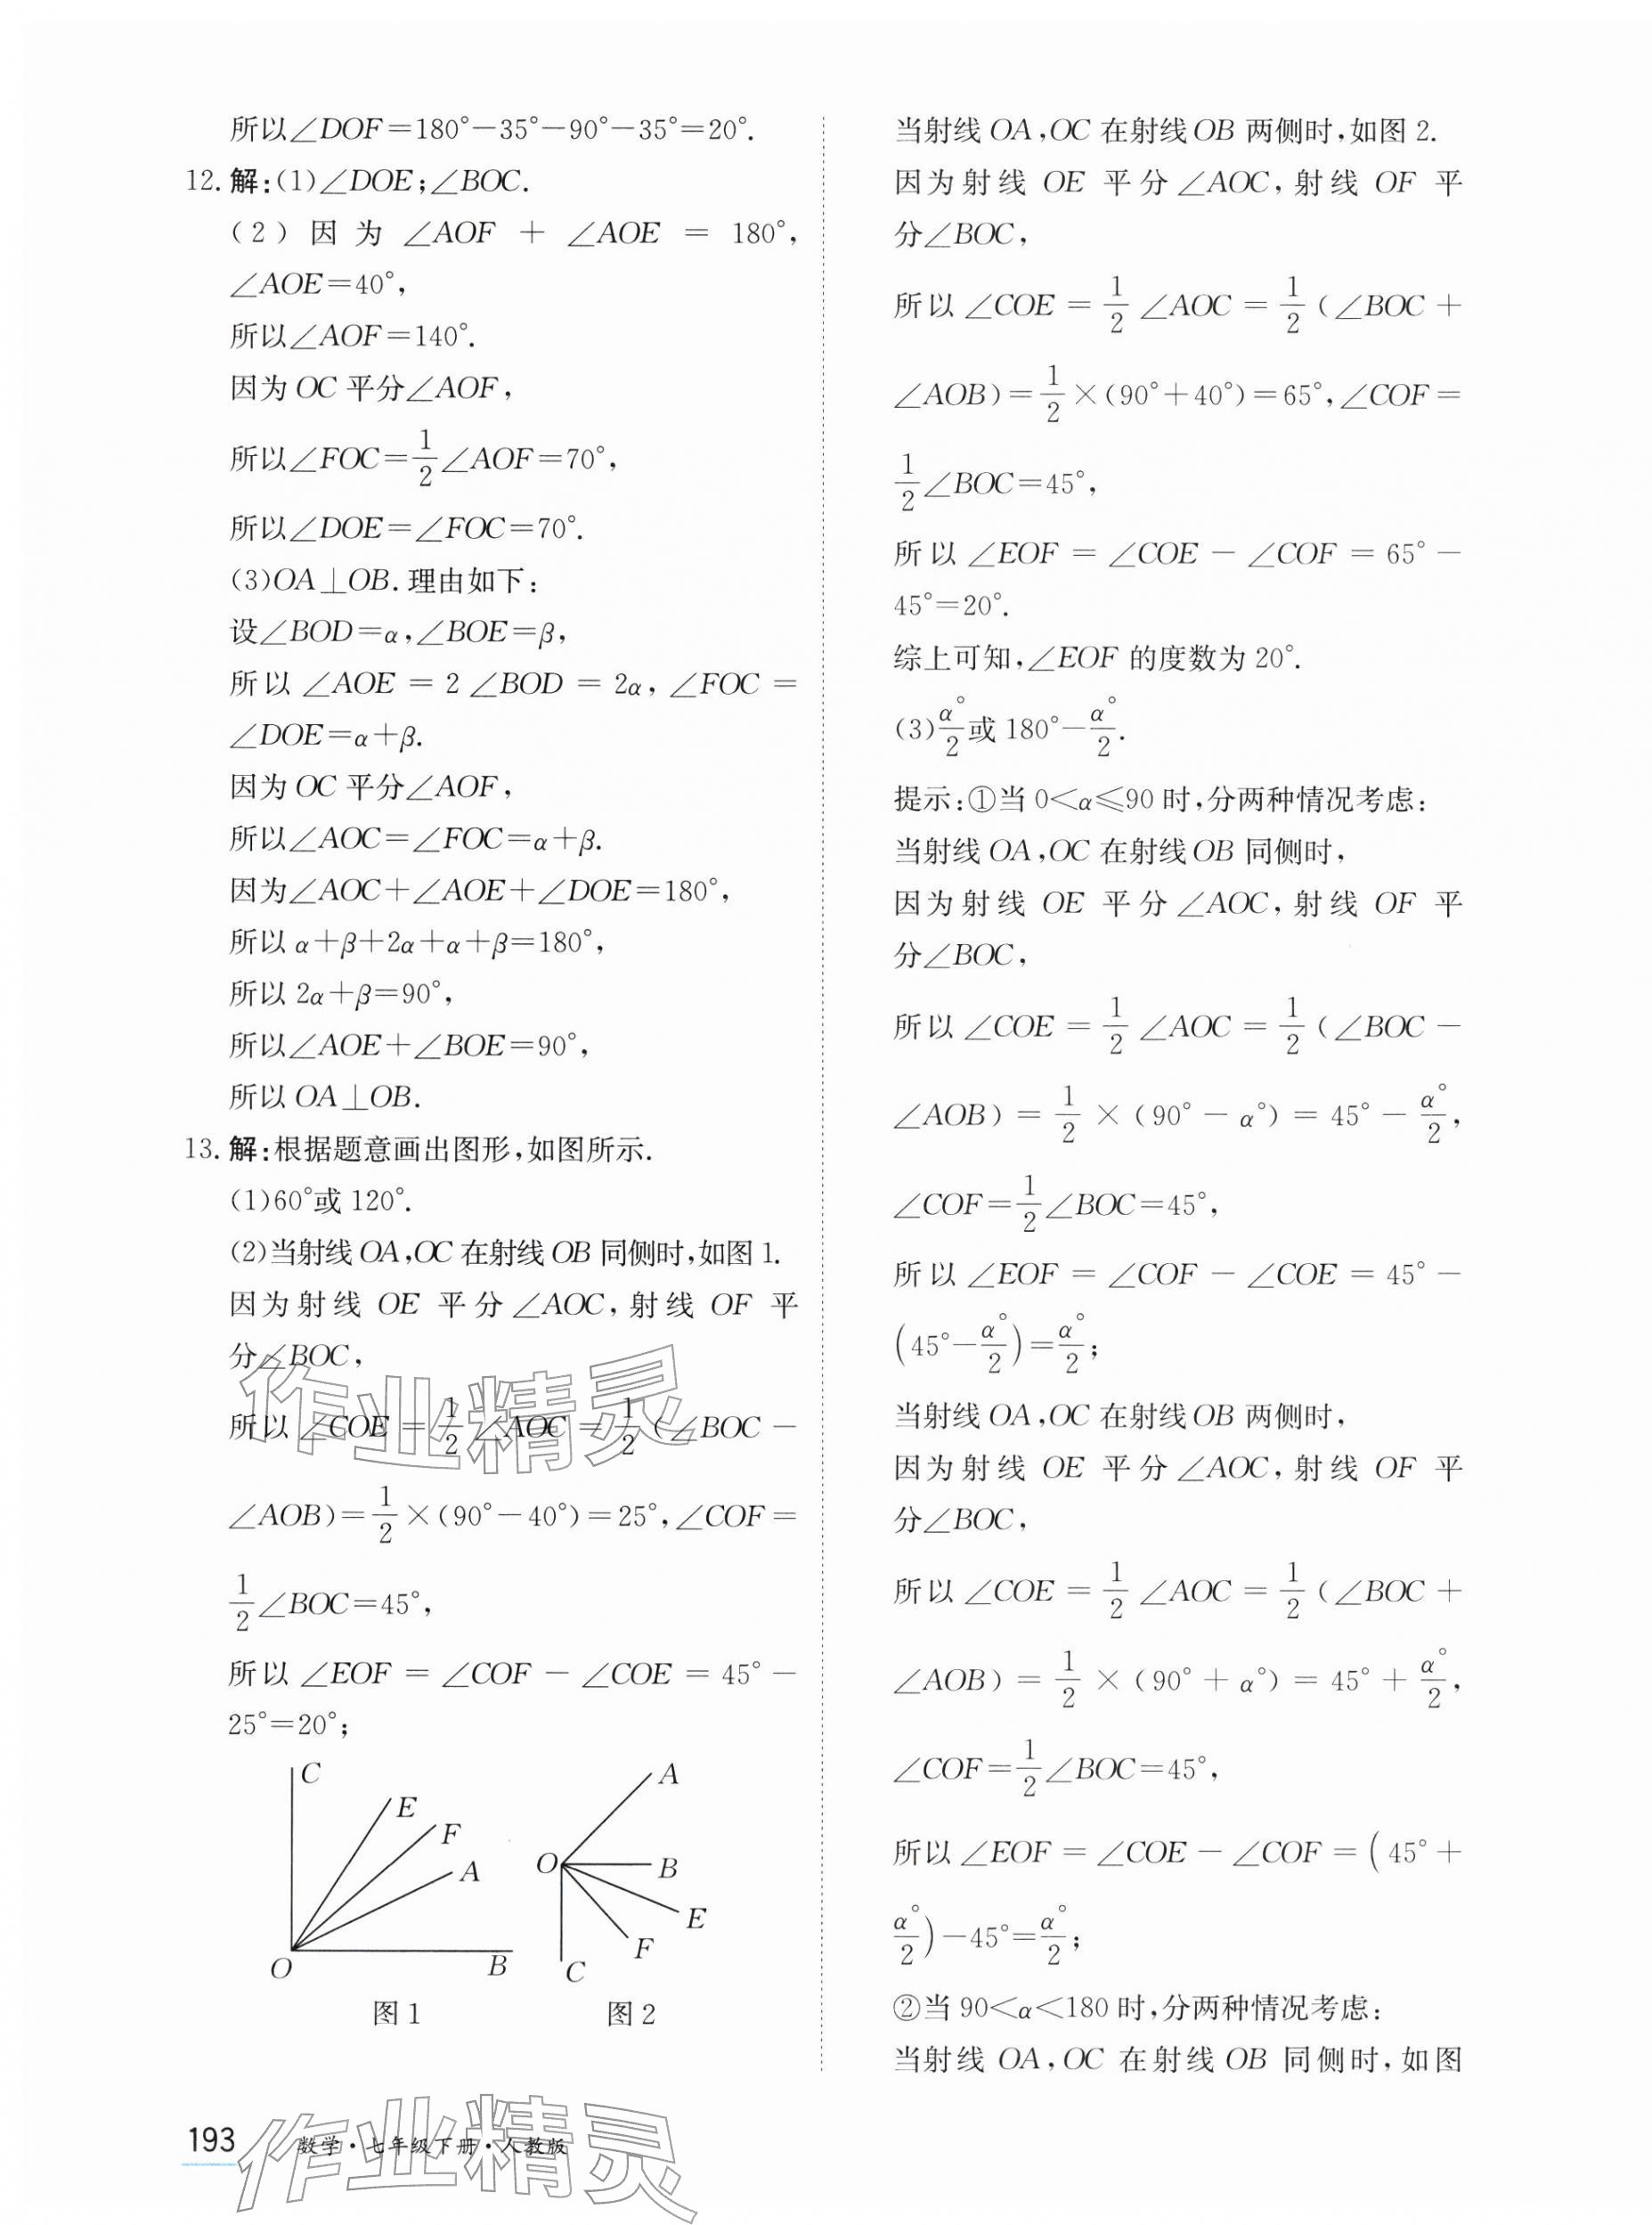 所以∠DOF=180°-35°-90°-35°=20°.
12. 解:(1)∠DOE;∠BOC.
(2)因为∠AOF+∠AOE=180°,
∠AOE=40°,
所以∠AOF=140°.
因为OC平分∠AOF,
所以∠FOC=1/2∠AOF=70°,
所以∠DOE=∠FOC=70°.
(3)OA⊥OB.理由如下:
设∠BOD=α,∠BOE=β,
所以∠AOE=2∠BOD=2α,∠FOC=
∠DOE=α+β.
因为OC平分∠AOF,
所以∠AOC=∠FOC=α+β.
因为∠AOC+∠AOE+∠DOE=180°,
所以α+β+2α+α+β=180°,
所以2α+β=90°,
所以∠AOE+∠BOE=90°,
所以OA⊥OB.
13. 解:根据题意画出图形,如图所示.
(1)60°或120°.
(2)当射线OA,OC在射线OB同侧时,如图1.
因为射线OE平分∠AOC,射线OF平
分∠BOC,
所以∠COE=1/2∠AOC=1/2(∠BOC-
∠AOB)=1/2×(90°-40°)=25°,∠COF=
1/2∠BOC=45°,
所以∠EOF=∠COF-∠COE=45°-
25°=20°;
C
E
F
A
O
B
图1
A
O
B
E
F
C
图2
当射线OA,OC在射线OB两侧时,如图2.
因为射线OE平分∠AOC,射线OF平
分∠BOC,
所以∠COE=1/2∠AOC=1/2(∠BOC+
∠AOB)=1/2×(90°+40°)=65°,∠COF=
1/2∠BOC=45°,
所以∠EOF=∠COE-∠COF=65°-
45°=20°.
综上可知,∠EOF的度数为20°.
(3)α°/2或180°-α°/2.
提示:①当0<α≤90时,分两种情况考虑:
当射线OA,OC在射线OB同侧时,
因为射线OE平分∠AOC,射线OF平
分∠BOC,
所以∠COE=1/2∠AOC=1/2(∠BOC-
∠AOB)=1/2×(90°-α°)=45°-α°/2,
∠COF=1/2∠BOC=45°,
所以∠EOF=∠COF-∠COE=45°-
(45°-α°/2)=α°/2;
当射线OA,OC在射线OB两侧时,
因为射线OE平分∠AOC,射线OF平
分∠BOC,
所以∠COE=1/2∠AOC=1/2(∠BOC+
∠AOB)=1/2×(90°+α°)=45°+α°/2,
∠COF=1/2∠BOC=45°,
所以∠EOF=∠COE-∠COF=(45°+
α°/2)-45°=α°/2;
②当90<α<180时,分两种情况考虑:
当射线OA,OC在射线OB同侧时,如图
作业精灵
193 数学·七年级下册·人教版
作业精灵